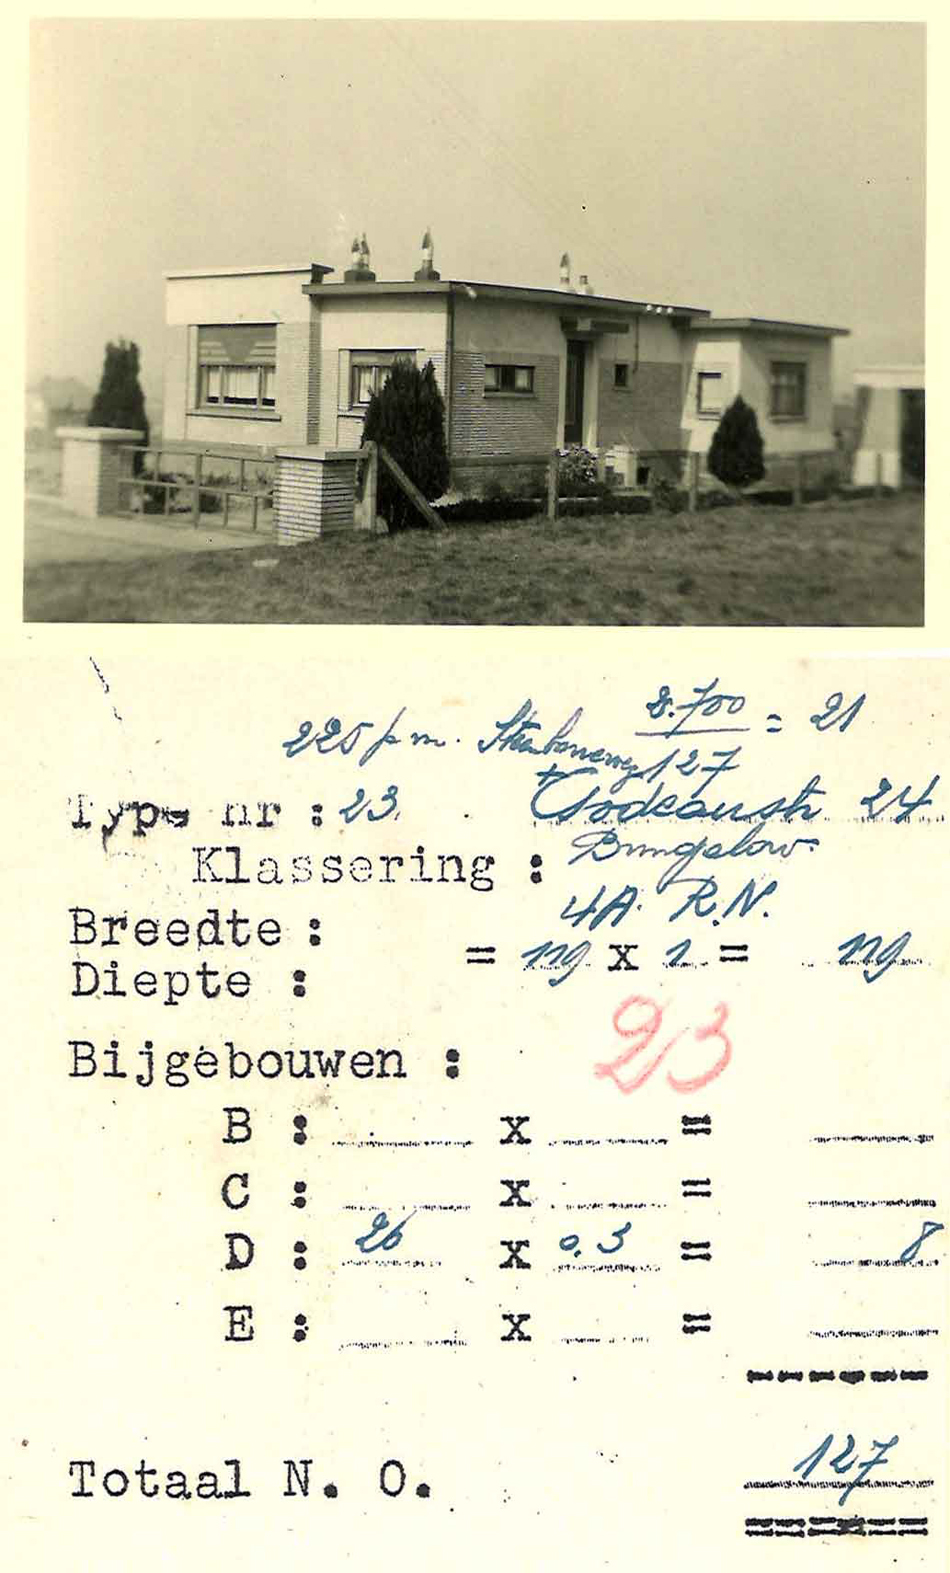 225 p.m. 2.700 = 21
127
Type nr : 23. 24
Klassering : Bungalow
4A. R.N.
Breedte :
= 119 x 1 = 119
Diepte :
23
Bijgebouwen :
B : x =
C : x =
D : 26 x 0.3 = 8
E : x =
Totaal N. O. 127